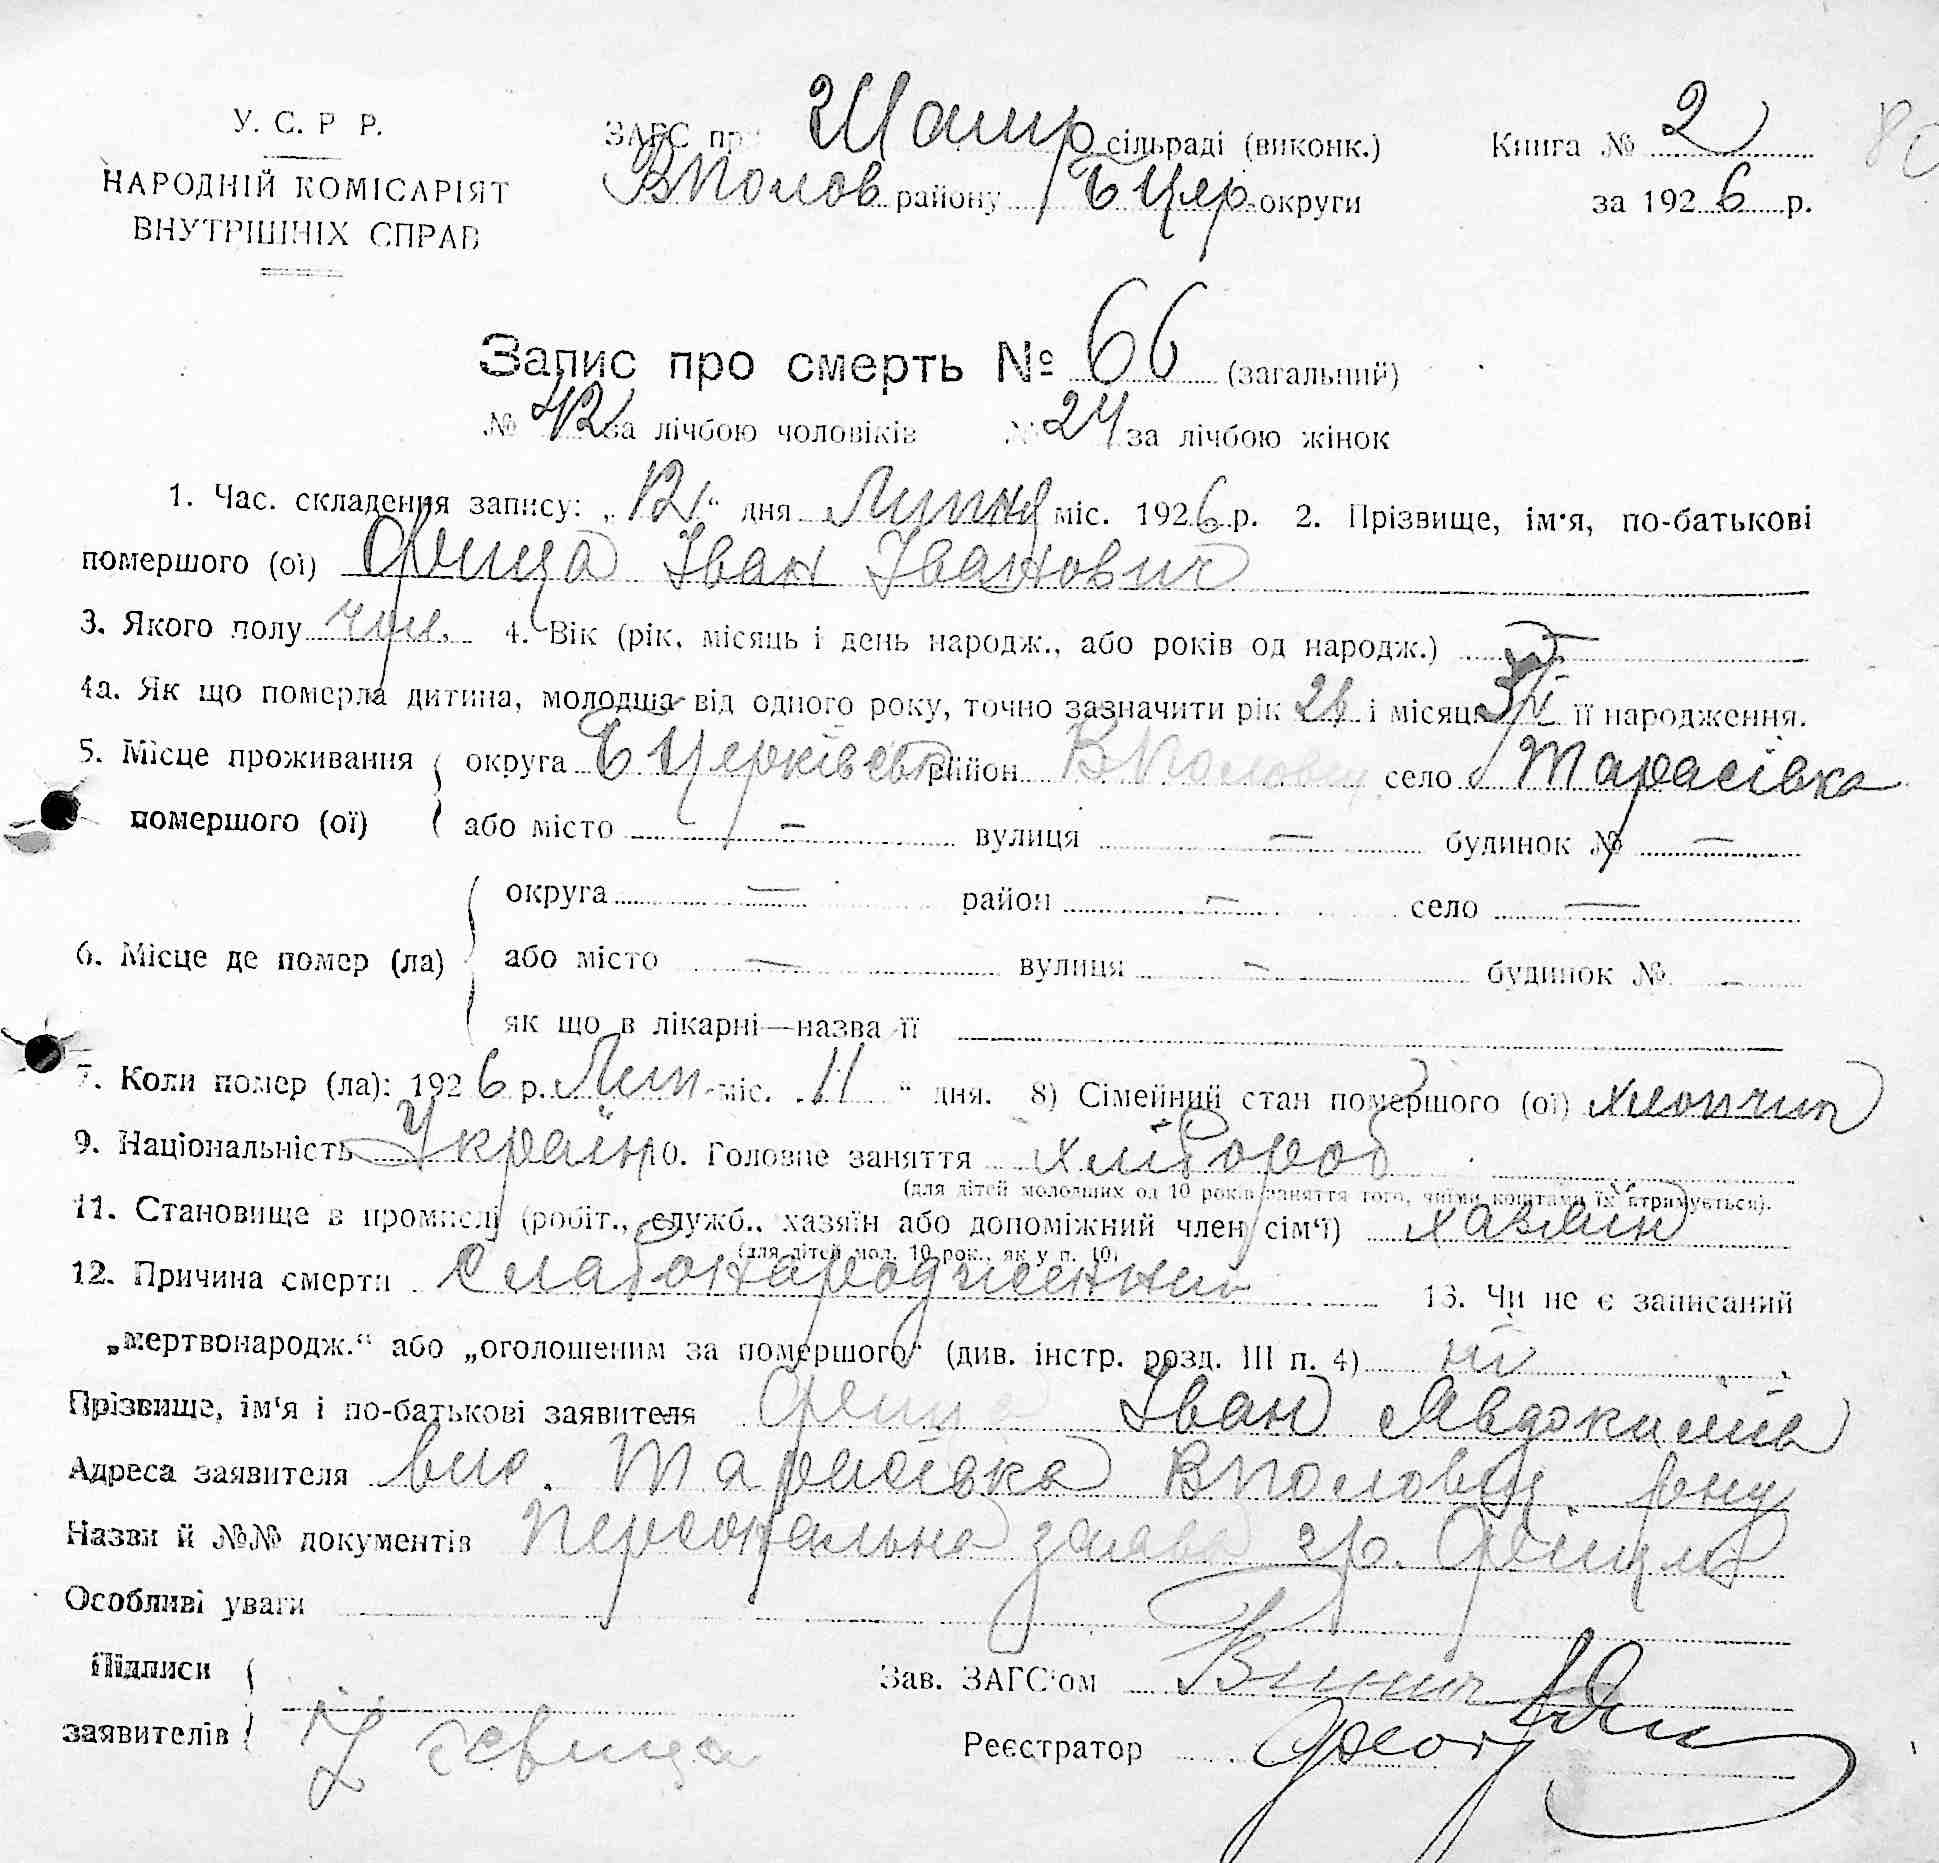 У. С. Р Р.
НАРОДНІЙ КОМІСАРІЯТ
ВНУТРІШНІХ СПРАВ
ЗАГС при Шамр сільраді (виконк.)
ВПолов району БЦер округи
Книга № 2
за 1926 р.
Запис про смерть № 66 (загальний)
№ 42 за лічбою чоловіків № 24 за лічбою жінок
1. Час. складення запису: „12“ дня Липня міс. 1926 р. 2. Прізвище, ім'я, по-батькові
помершого (ої) Фища Іван Іванович
3. Якого полу чол. 4. Вік (рік, місяць і день народж., або років од народж.)
4а. Як що померла дитина, молодша від одного року, точно зазначити рік 26 і місяць її народження.
5. Місце проживання помершого (ої) округа БЦерківськ район ВПоловец село Тарасівка
або місто — вулиця — будинок № —
6. Місце де помер (ла) округа — район — село —
або місто — вулиця — будинок № —
як що в лікарні—назва її
7. Коли помер (ла): 1926 р. Лип міс. 11 “ дня. 8) Сімейний стан помершого (ої) хлопчик
9. Національність Україн 10. Головне заняття хлібороб
(для дітей молодших од 10 років заняття того, чиїми коштами їх втримується).
11. Становище в промислі (робіт., служб., хазяїн або допоміжний член сім'ї) хазяїн
(для дітей мол. 10 рок., як у п. 10)
12. Причина смерти слабонароджений 13. Чи не є записаний
„мертвонародж.“ або „оголошеним за помершого“ (див. інстр. розд. III п. 4) ні
Прізвище, ім'я і по-батькові заявителя Фища Іван Явдокимів
Адреса заявителя вис. Тарасівка ВПоловец. р-ну
Назви й №№ документів Персональна заява гр.
Особливі уваги
Підписи заявителів
Зав. ЗАГС'ом
Реєстратор